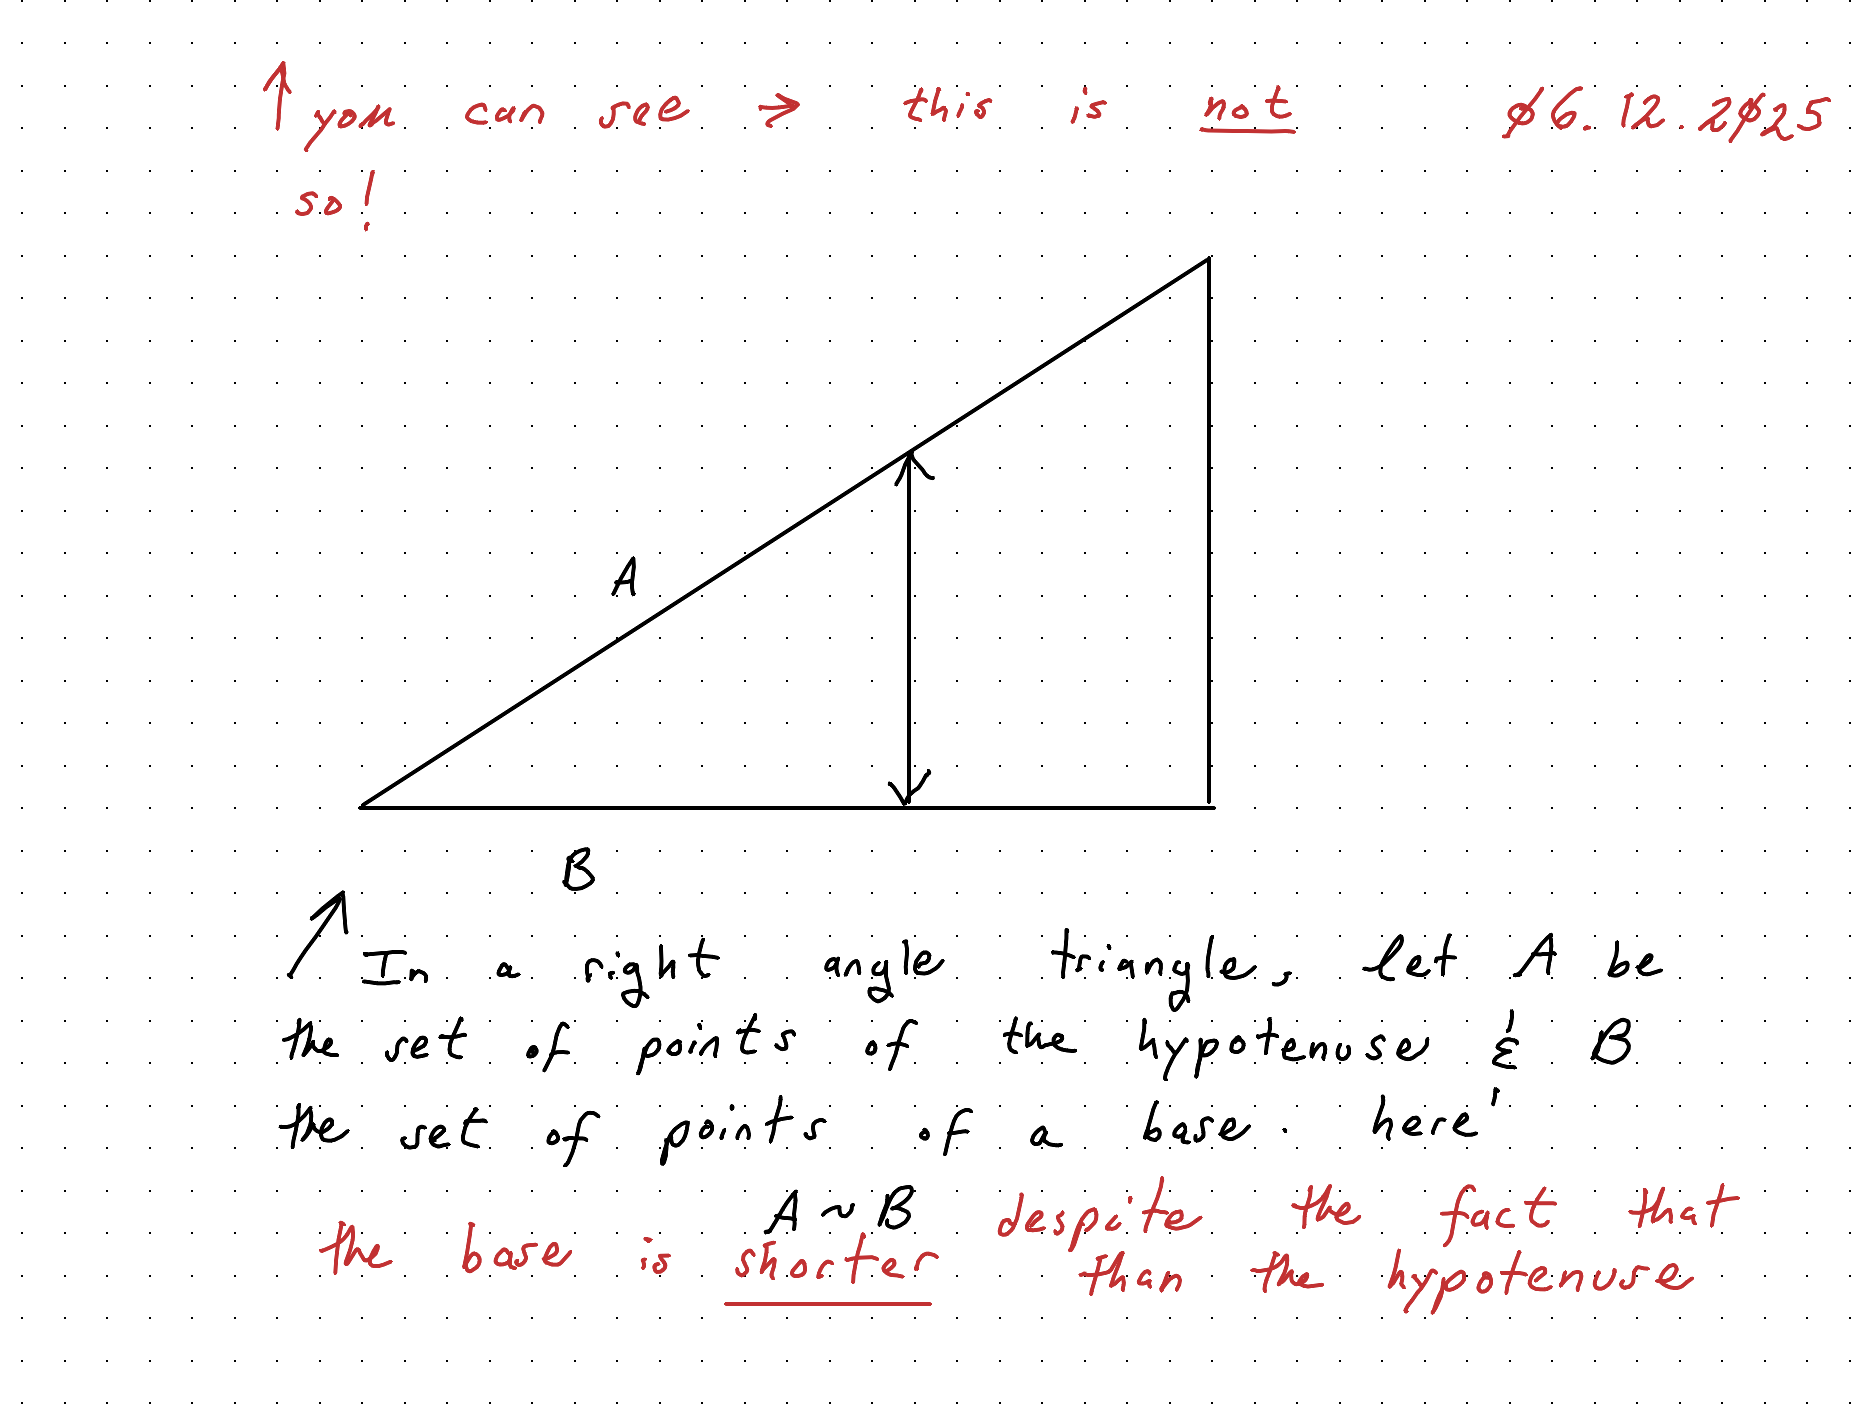 ↑ you can see → this is not ø6.12.2ø25
so!
A
B
↗ In a right angle triangle, let A be
the set of points of the hypotenuse & B
the set of points of a base. here'
A ~ B despite the fact that
the base is shorter than the hypotenuse